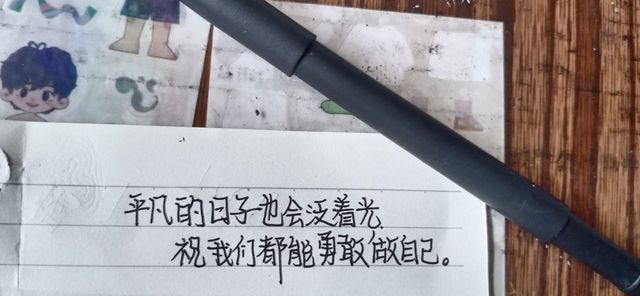 平凡的日子也会泛着光
祝我们都能勇敢做自己。